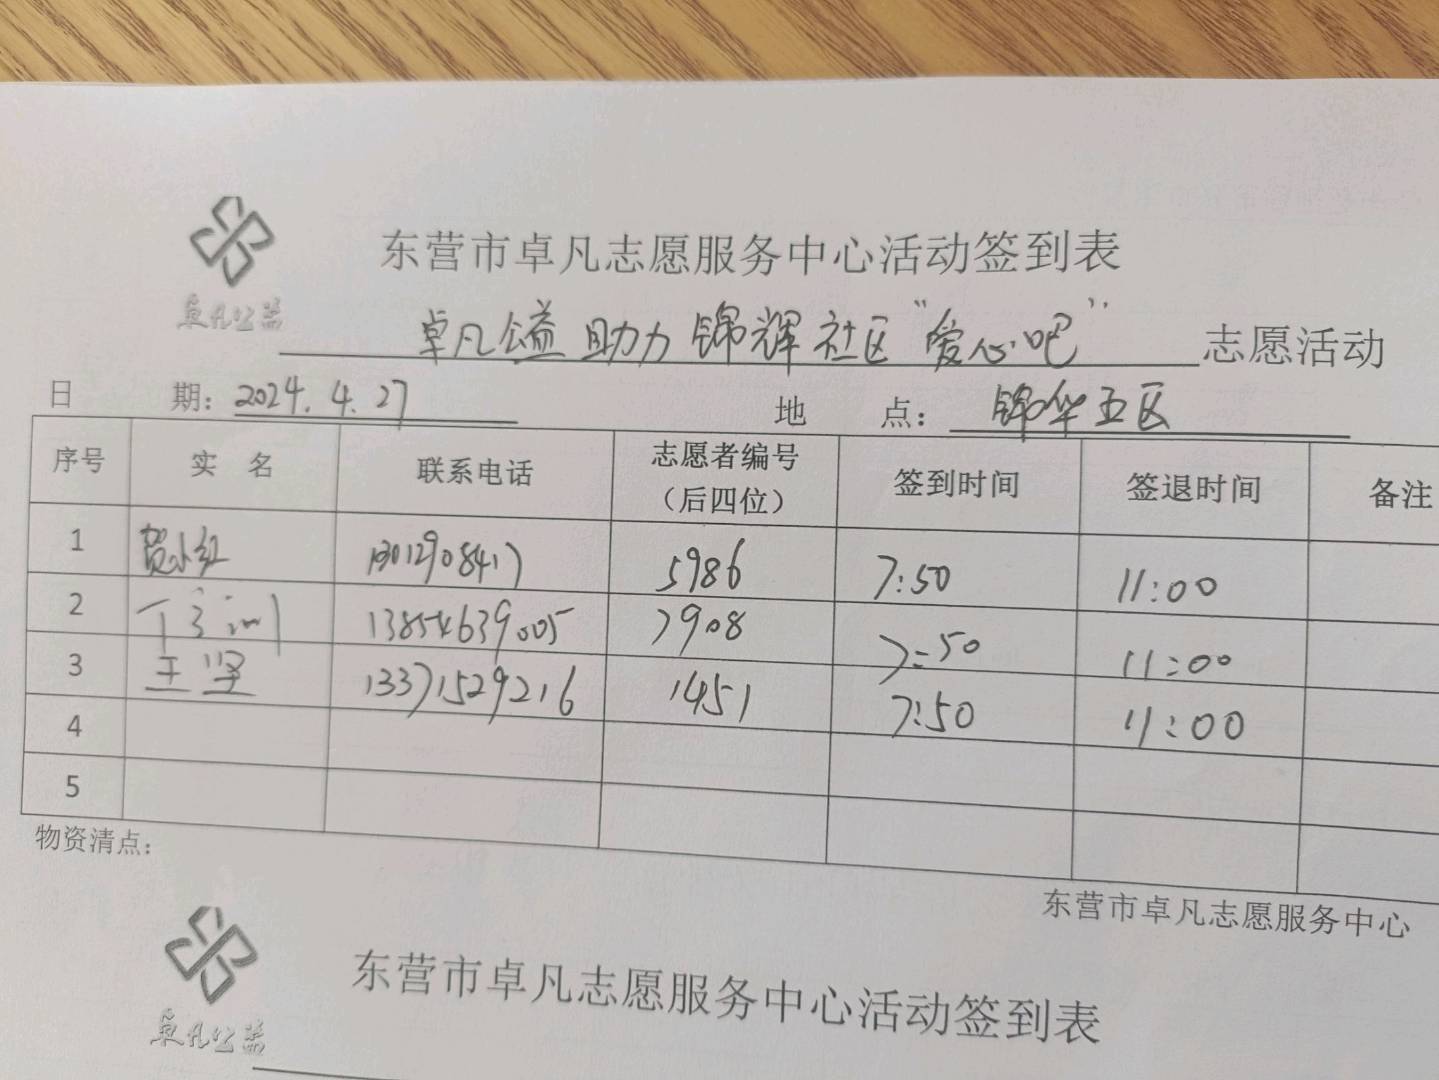 东营市卓凡志愿服务中心活动签到表
卓凡公益
卓凡公益 助力 锦辉社区“爱心吧” 志愿活动
日 期：2024.4.27 地 点：锦华五区
序号 实 名 联系电话 志愿者编号（后四位） 签到时间 签退时间 备注
1 贺小红 13012908417 5986 7:50 11:00
2 13854639005 7908 7:50 11:00
3 王坚 13371529216 1451 7:50 11:00
4
5
物资清点：
东营市卓凡志愿服务中心
卓凡公益
东营市卓凡志愿服务中心活动签到表